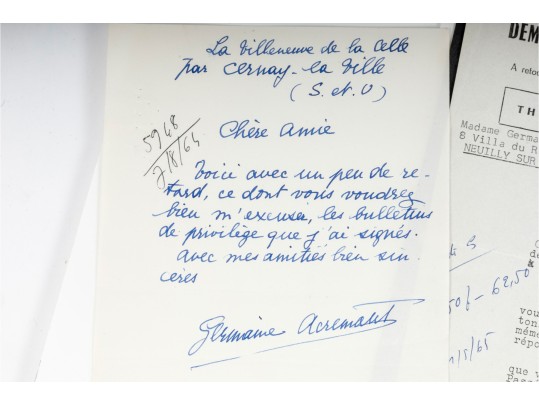 La Villeneuve de la Celle
par Cernay-la Ville
(S. et O)
5948
7/8/64
Chère Amie
Voici avec un peu de re-
tard, ce dont vous voudrez
bien m'excuser, les bulletins
de privilège que j'ai signés.
Avec mes amitiés bien sin-
cères
Germaine
DEM
A retou
TH
Madame Germa
8 Villa du R
NEUILLY SUR
de
&
50f - 62,50
vou
ton
même
répo
/5/65
que v